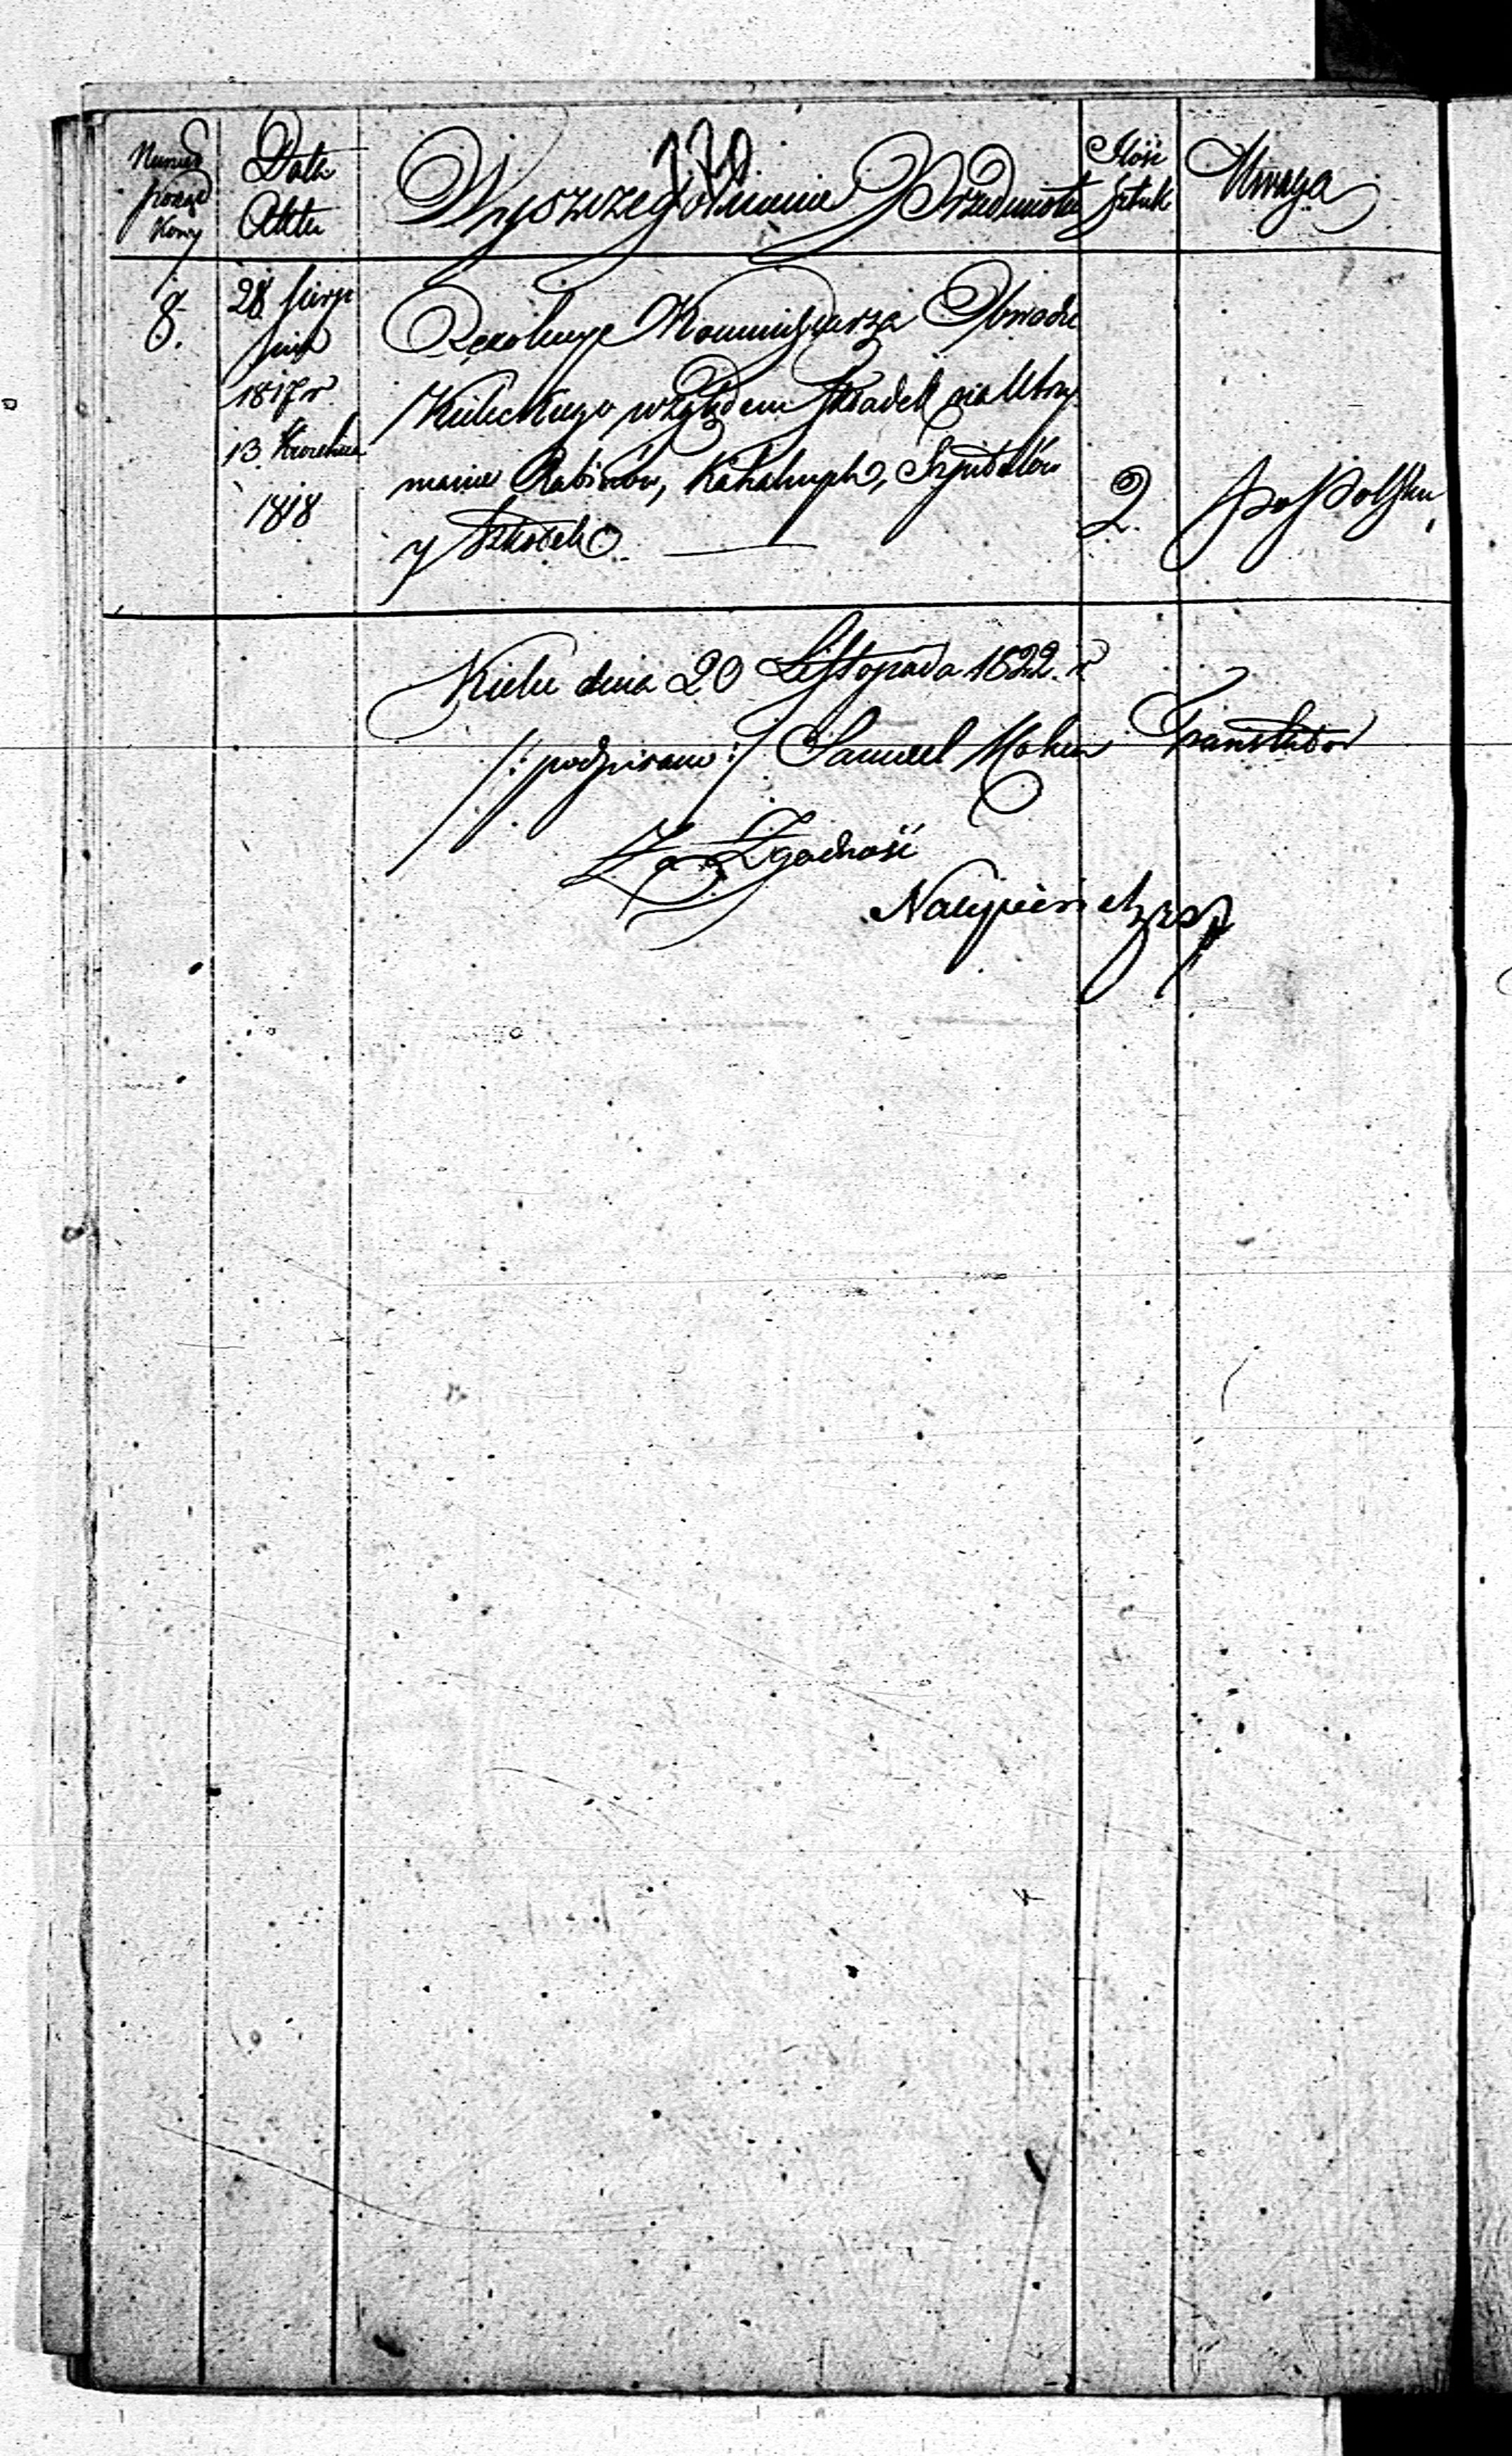 170
Numer
porząd
kowy
Data
Aktu
Wyszczegolnienie Przedmiotu
Ilość
sztuk
Uwaga
8.
28 Sierp
nia
1817 r
13 Kwietnia
1818
Rezolucye Kommissarza Obwodu
Kieleckiego względem składek na utrzy
manie Rabinów, Kahalnych, Szpitalów
y Szkółek
2.
po Polsku
Kielce dnia 20 Listopada 1822. r
/: podpisano :/ Samuel Translator
Za Zgodność